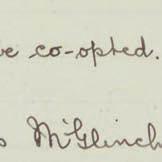 be co-opted.
McGlinch